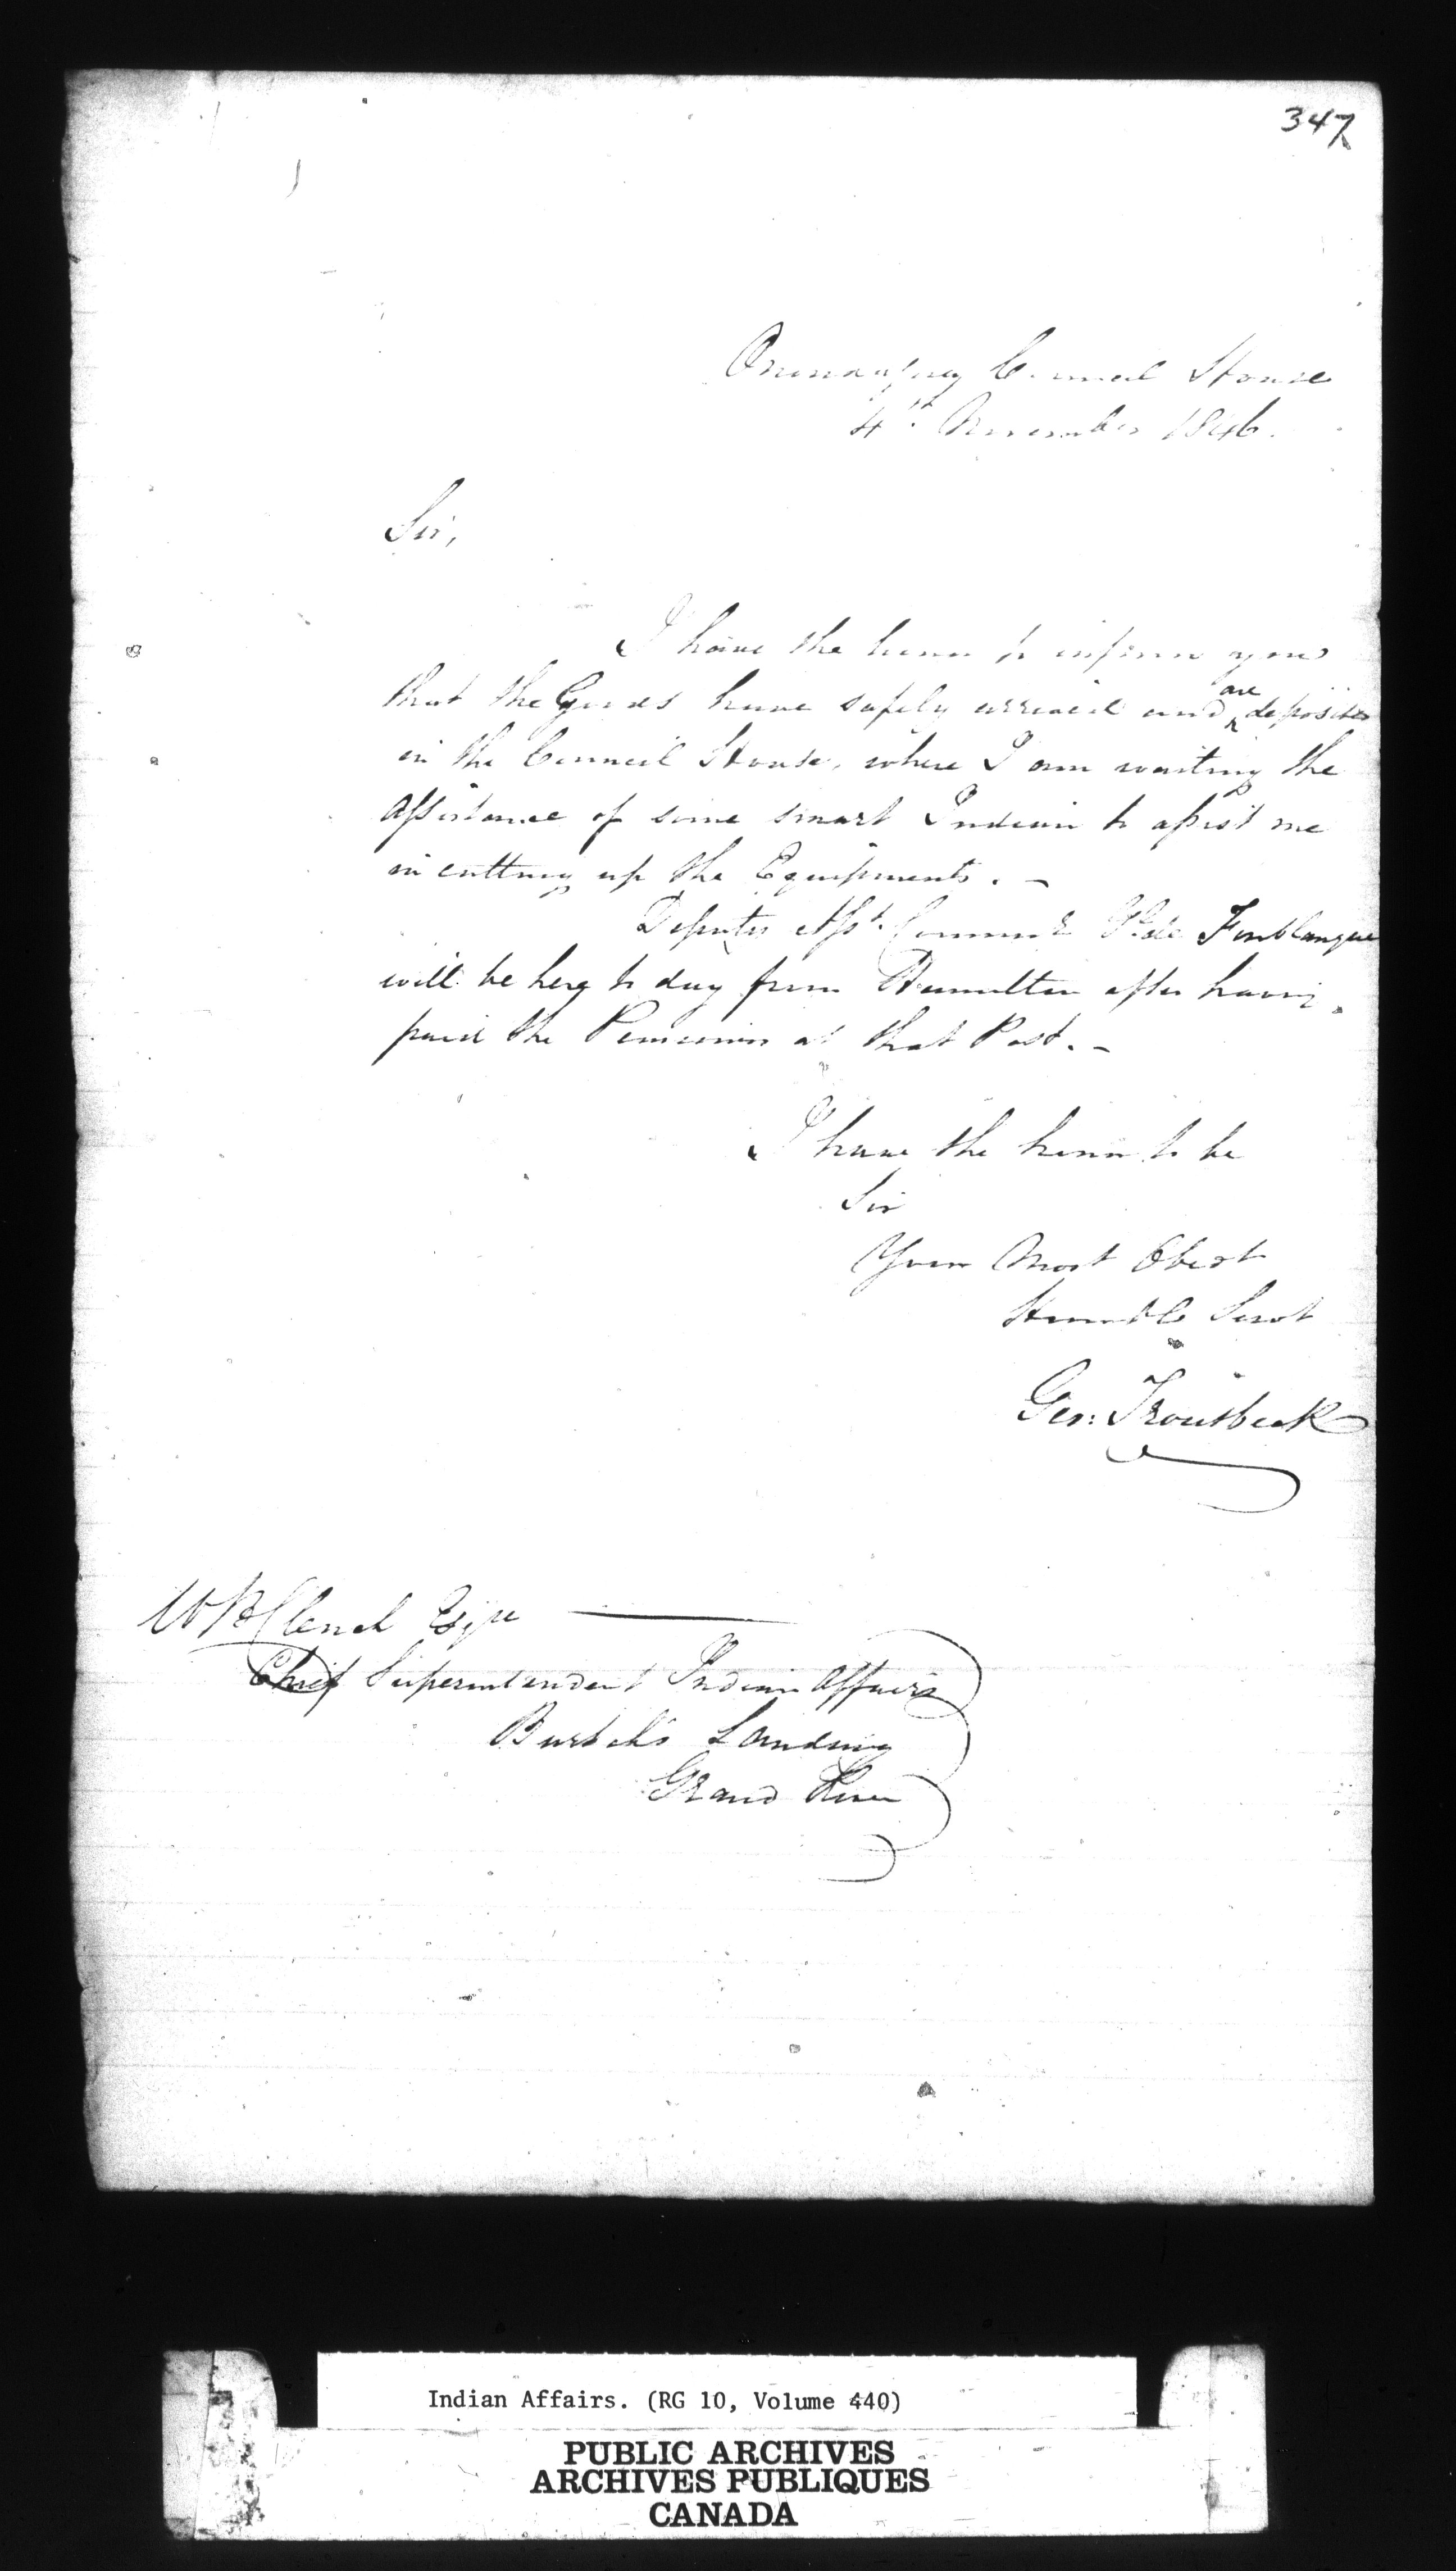 347
Council House
4th November 1846.
Sir,
I have the honor to inform you
that the Goods have safely arrived and are deposited
in the Council House, where I am waiting the
Assistance of some smart Indian to assist me
in cutting up the Equipments. –
Deputy Asst. Fonblanque
will be here to day from Hamilton after having
paid the Pensioners at that Post. –
I have the honor to be
Sir
Your Most Obedt
Humble Servt
Geo: Troutbeck
W B Clench Esqre
Chief Superintendent Indian Affairs
Landing
Grand River
Indian Affairs. (RG 10, Volume 440)
PUBLIC ARCHIVES
ARCHIVES PUBLIQUES
CANADA